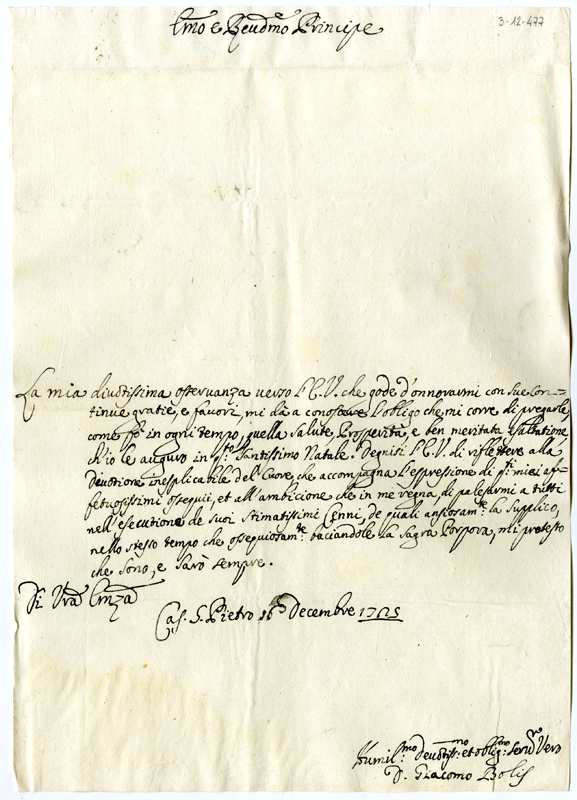 3-12-477
Emo e Reudmo Principe
La mia diuotissima osseruanza uerso l'E.V. che gode d'onnorarmi con sue con=
tinue gratie, e fauori, mi dà a conoscere l'obligo che mi corre di pregarle
come fò in ogni tempo, quella salute Prosperità, e ben meritata Esaltatione,
ch'io le auguro in q.to Santissimo Natale. Degnisi l'E.V. di riflettere alla
deuotione inesplicabile del Cuore, che accompagna l'espressione di q.ti miei af=
fetuosissimi ossequii, et all'ambicione che in me regna, di palesarmi a tutti
nell'esecutione de suoi stimatissimi Cenni, de quali ansiosam.te la supplico,
nello stesso tempo che ossequiosam.te baciandole la Sagra Porpora, mi protesto
che sono, e sarò sempre.
Di Vra Emza
Cas. S. Pietro 16 Decembre 1725
Humil.mo Deuotiss.mo et oblig.mo Seru.re Vero
D. Giacomo Bolis